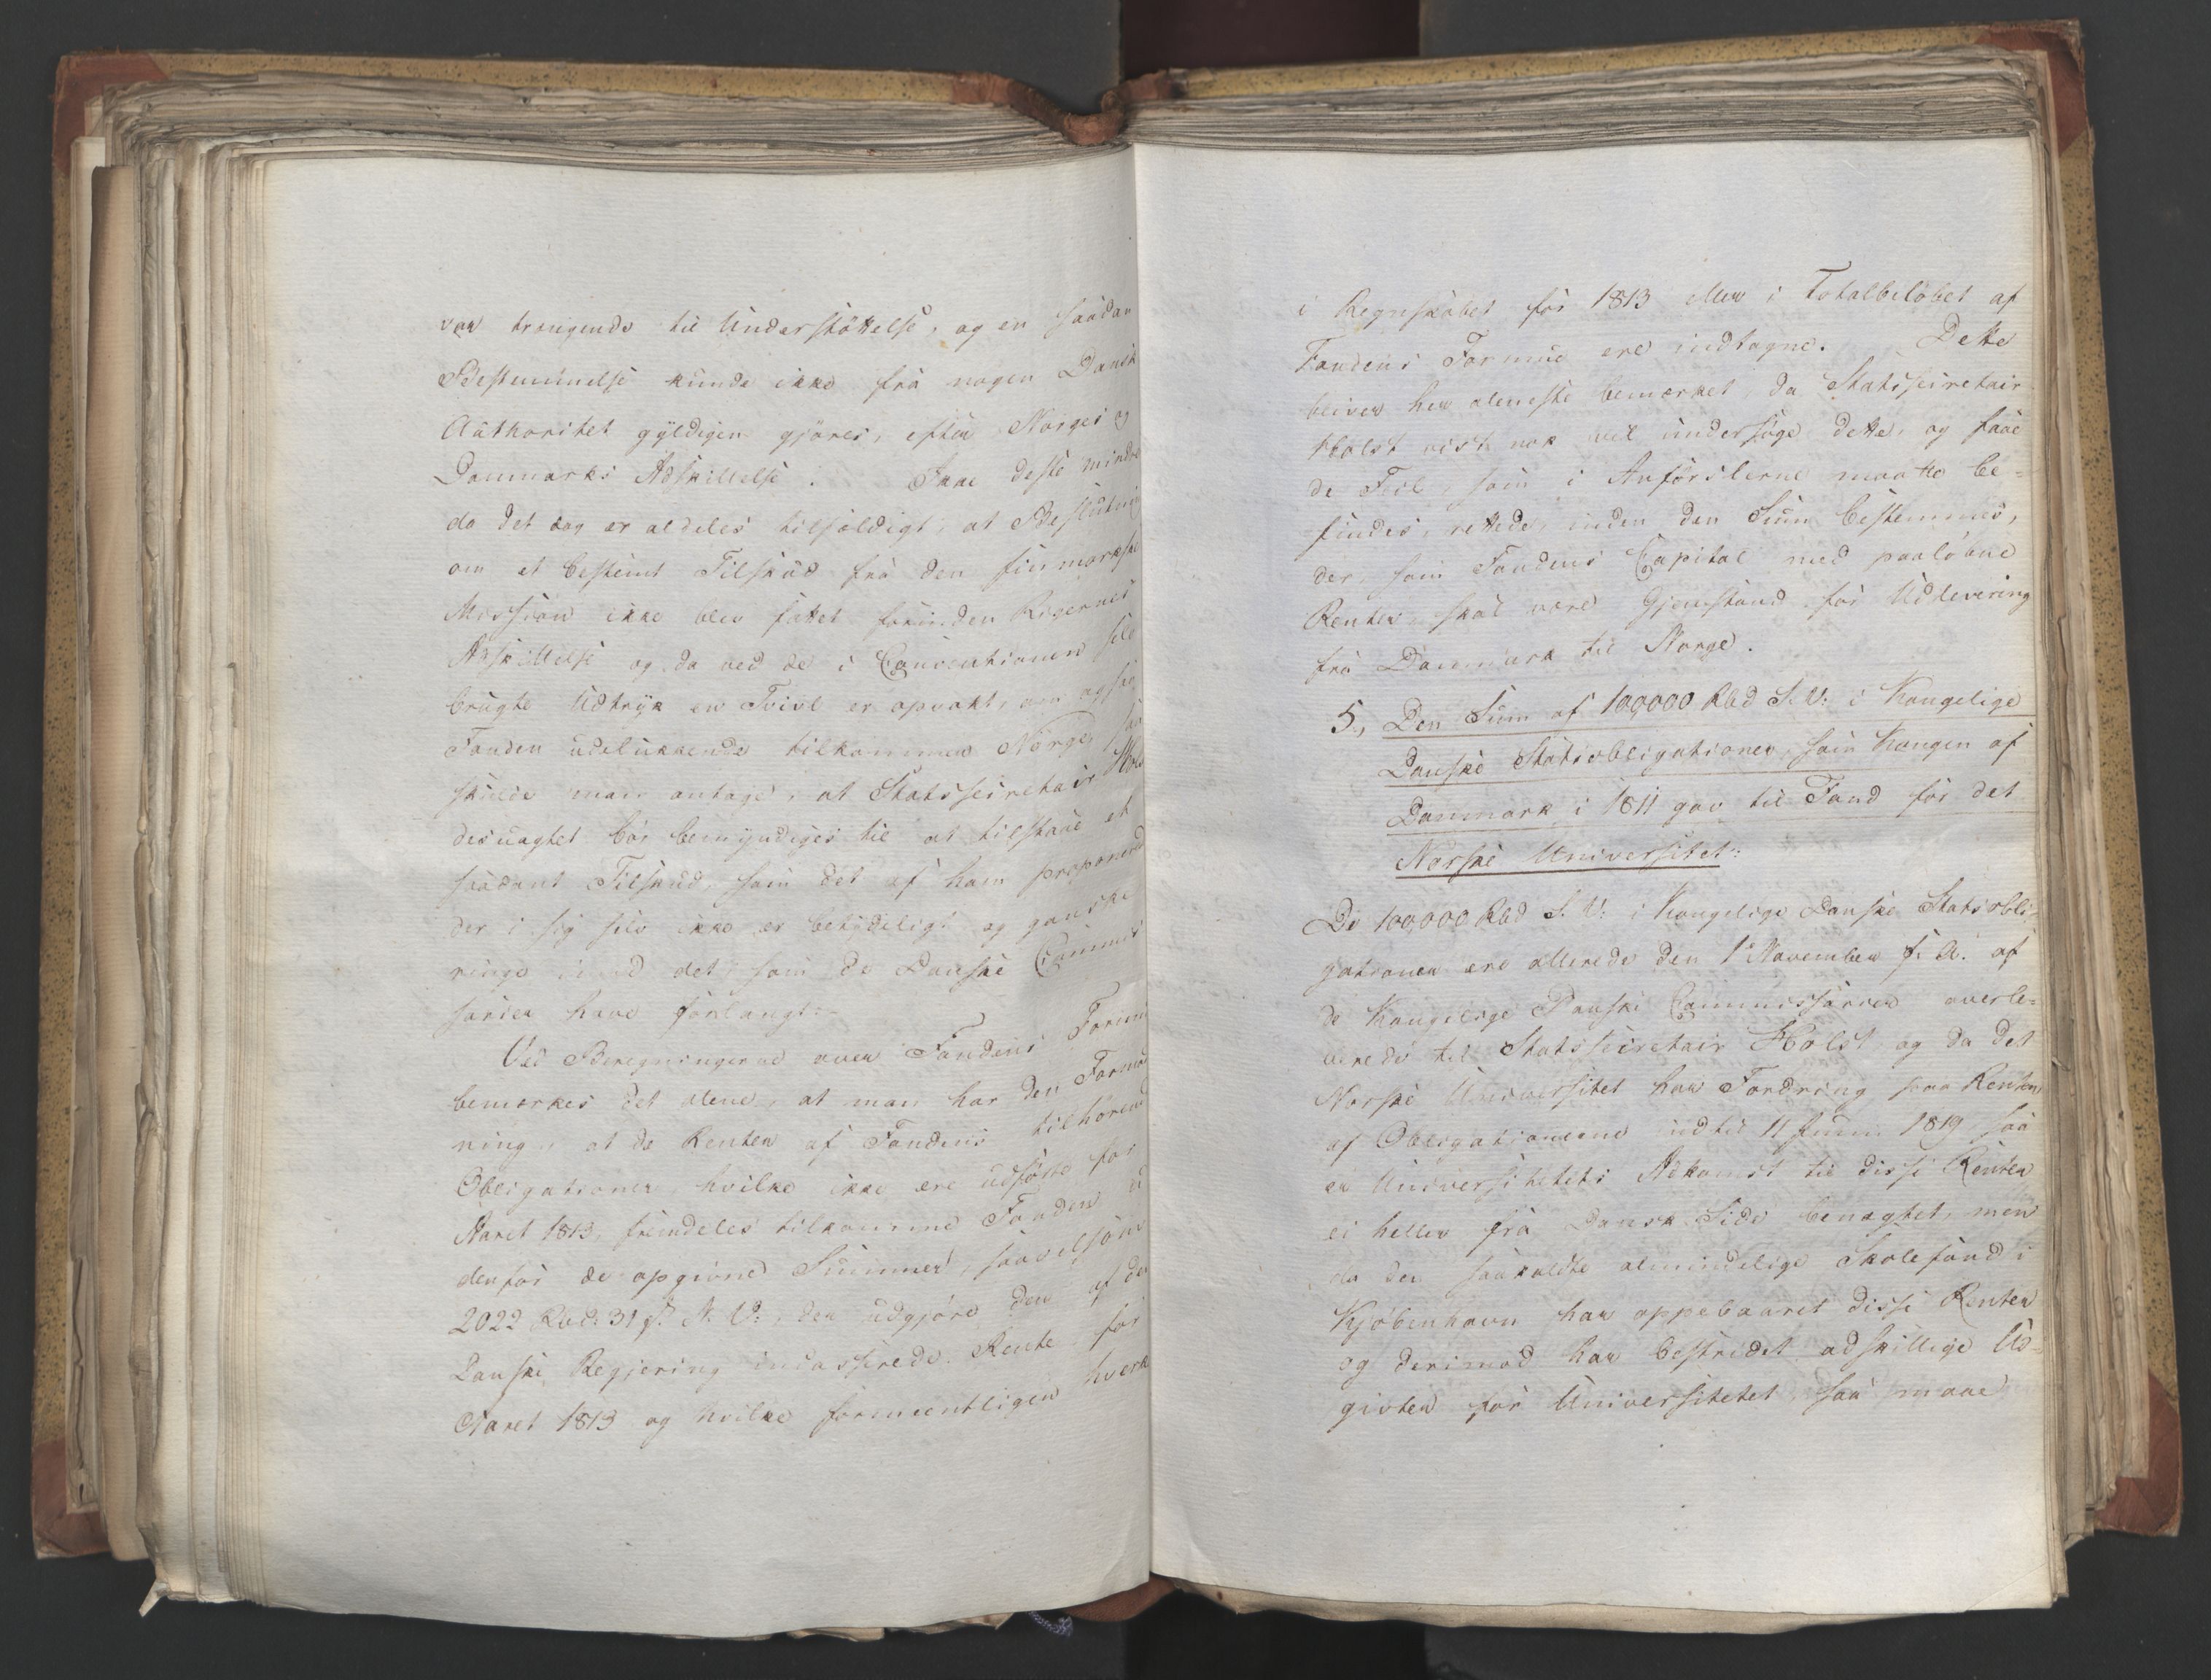 var trængende til Understöttelse, og en saadan
Bestemmelse kunde ikke fra nogen Dansk
Authoritet gyldigen gjöres, efter Norges og
Danmarks Adskillelse. Ikke desto mindre
da det dog er aldeles tilfældigt, at Beslutning
om et bestemt Tilskud fra den finmarkske
Mission ikke blev fattet forinden Rigernes
Adskillelse og da ved de i Conventionen selv
brugte Udtryk en Tvivl er opvakt, om ogsaa
Fonden udelukkende tilkommer Norge, saa
skulde man antage, at Statssecretair Holst
desuagtet bör bemyndiges til at tilstaae et
saadant Tilskud, som det af ham proponerede
der i sig selv ikke er betydeligt og ganske
ringe imod det, som de Danske Commis
sarier have forlangt:
Ved Beregningerne over Fondens Formue
bemærkes det alene, at man har den Formee
ning, at de Renter af Fondens tilhörende
Obligationer hvilke ikke ere udförte for
Aaret 1813, fremdeles tilkomme Fonden
denfor de opgivne Summer, saavelsom
2022 Rbd. 31 s. N. V., der udgjöre den af den
Danske Regjering indcasserede Rente for
Aaret 1813 og hvilke formeentligen hverken
i Regnskabet for 1813 eller i Totalbelöbet af
Fondens Formue ere indtagne. Dette
bliver her alleneste bemærket, da Statssecretair
Holst vist nok vil undersöge dette, og faae
de Feil, som i Anförslerne maatte be=
findes, rettede, inden den Sum bestemmes,
der, som Fondens Capital med paalöbne
Renter, skal være Gjenstand for Udlevering
fra Danmark til Norge.
5, Den Sum af 100,000 Rbd S. V. i Kongelige
Danske Statsobligationer, som Kongen af
Danmark i 1811 gav til Fond for det
Norske Universitet:
De 100,000 Rbd S. V. i Kongelige Danske Statsobli=
gationer ere allerede den 1ste November f. A. af
de Kongelige Danske Commissairer overle=
verede til Statssecretair Holst og da det
Norske Universitet har Fordring paa Renten
af Obligationerne indtil 11 Juni 1819, saa
er Universitetets Adkomst til disse Renter
ei heller fra Dansk Side benægtet, men
da den saakaldte almindelige Skolefond i
Kjöbenhavn har oppebaaret disse Renter
og derimod har bestridet adskillige Ud=
givter for Universitetet, saa maae